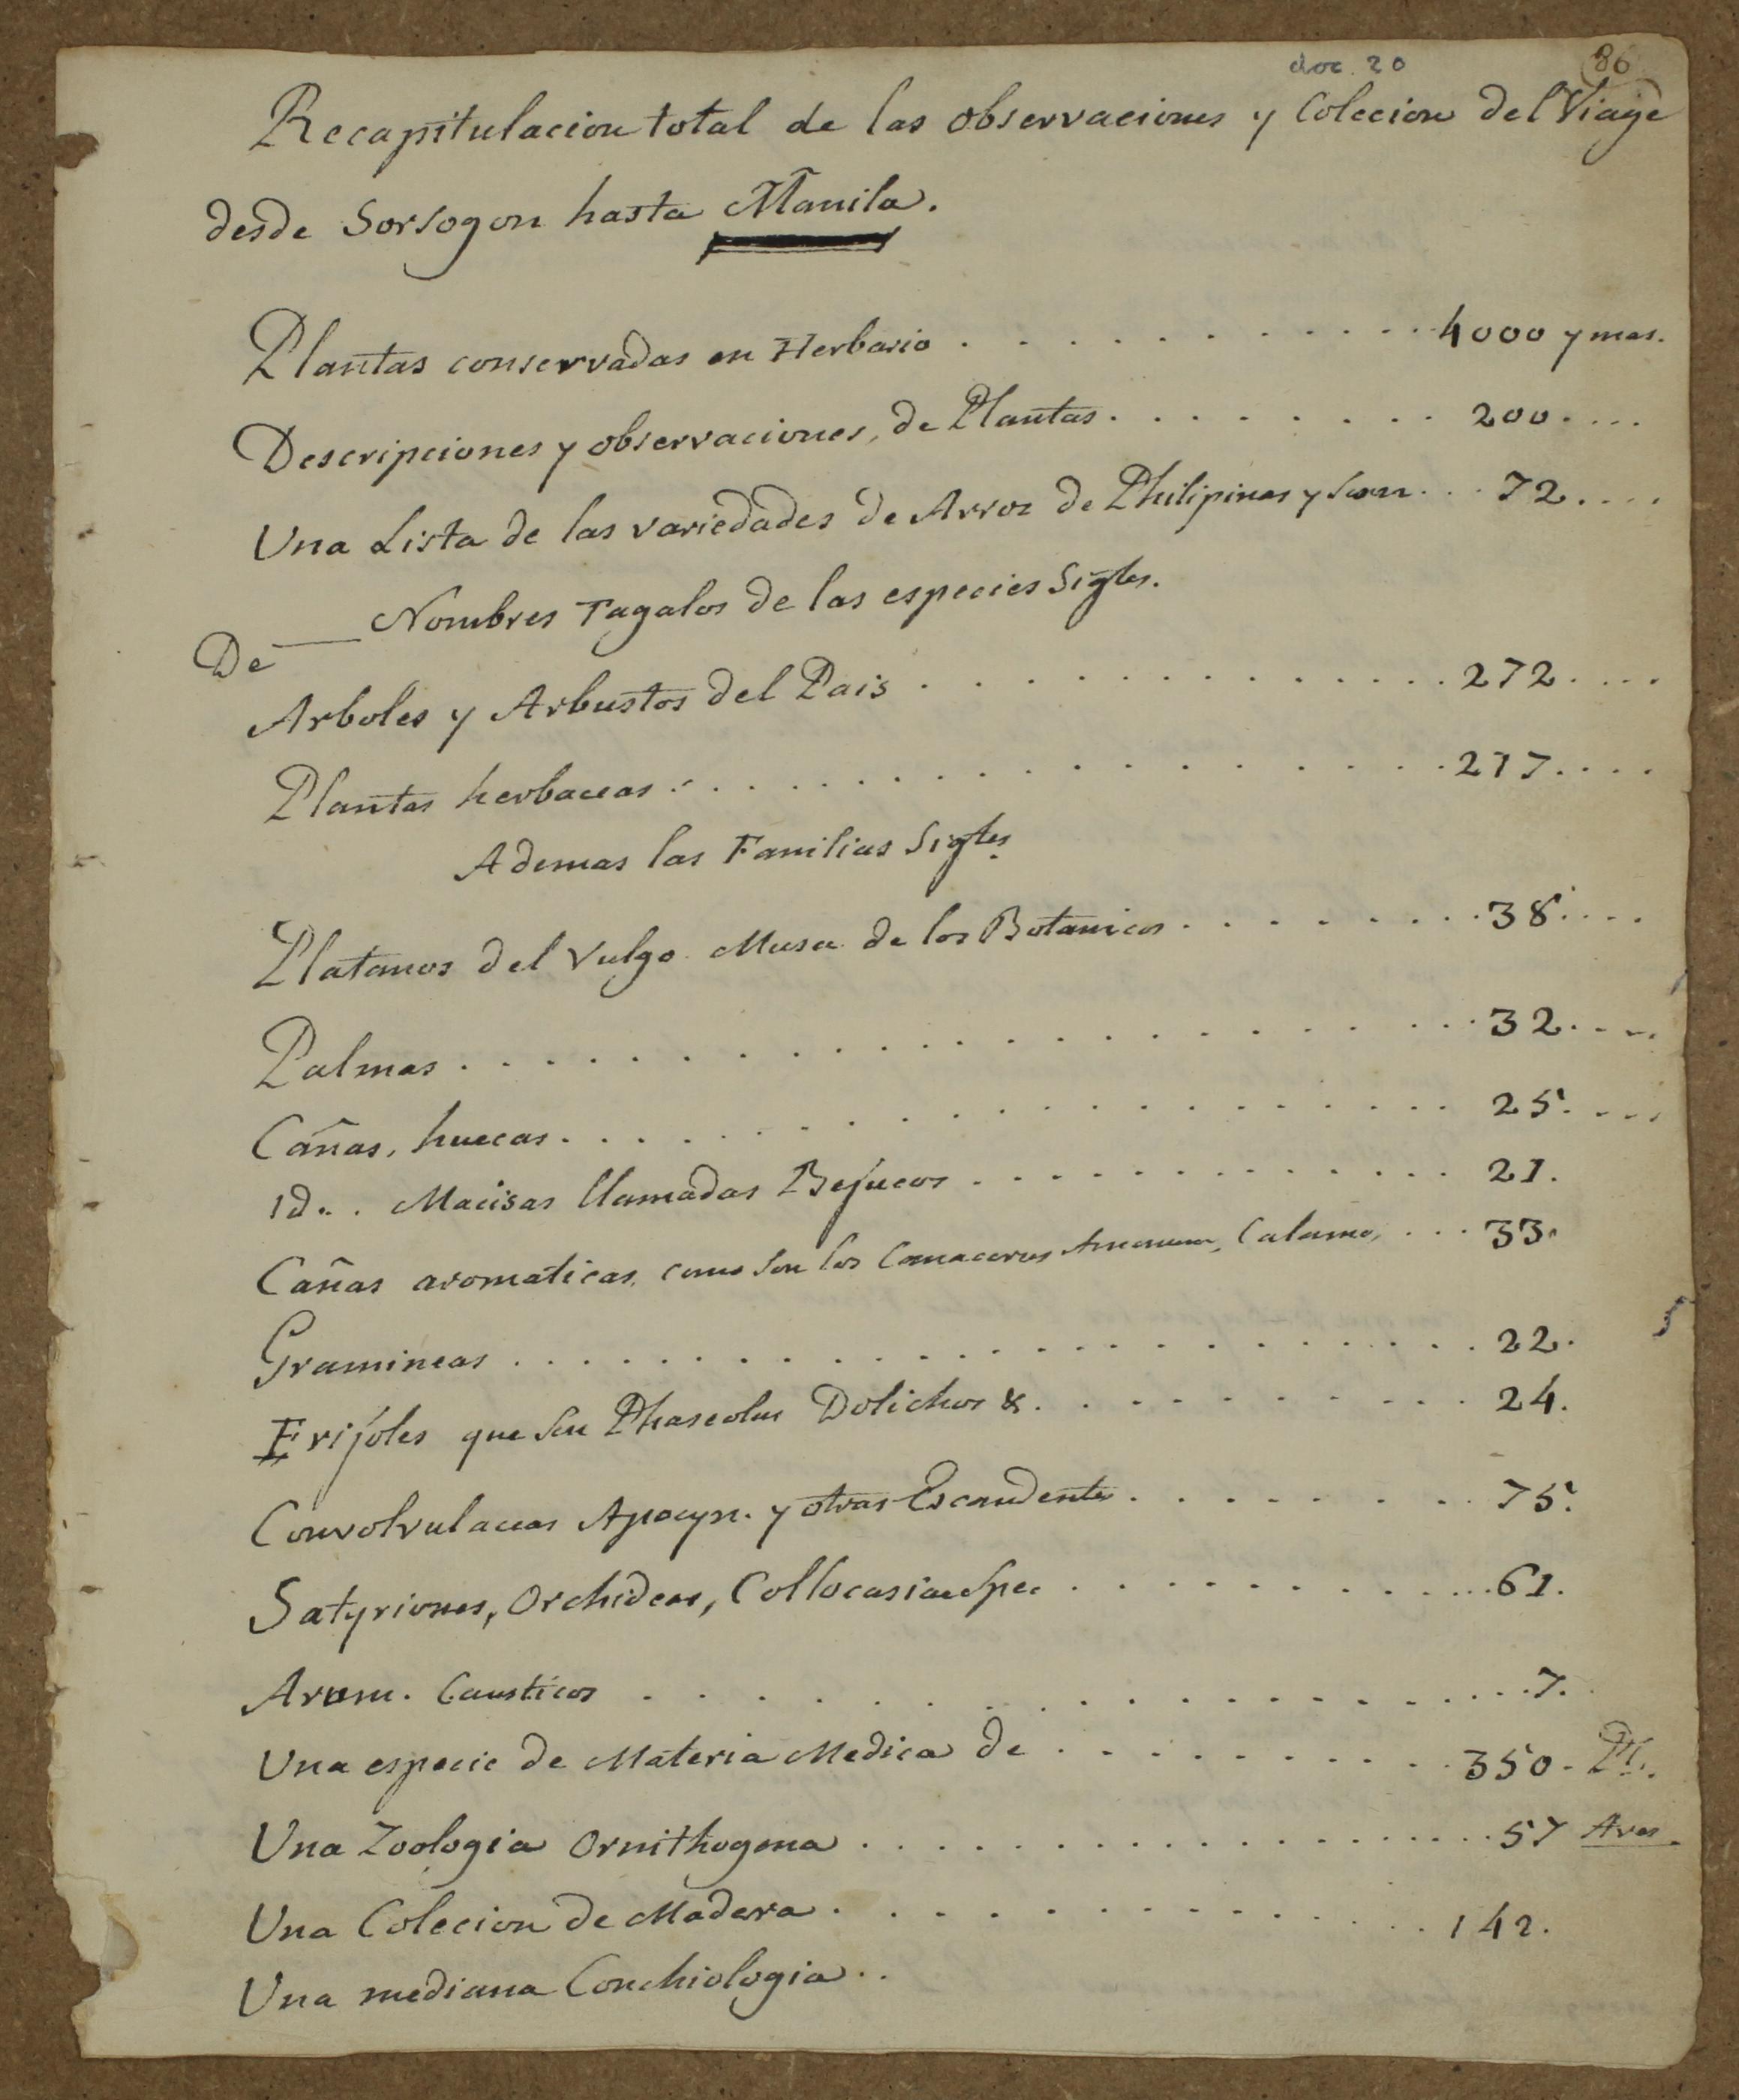 doc. 20
86
Recapitulacion total de las observaciones y Coleccion del Viage
desde Sorsogon hasta Manila.
Plantas conservadas en Herbario . . . . . . . . . . 4000 y mas.
Descripciones y observaciones, de Plantas . . . . . . . . 200 . . . .
Una Lista de las variedades de Arroz de Philipinas y . . . 72 . . . .
De — Nombres Tagalos de las especies Sigtes.
Arboles y Arbustos del Pais . . . . . . . . . . . . . 272 . . . .
Plantas herbaceas . . . . . . . . . . . . . . . 217 . . . .
Ademas las Familias Sigtes
Platanos del Vulgo. Musa de los Botanicos . . . . . . . . 38 . . . .
Palmas . . . . . . . . . . . . . . . . . . 32 . . . .
Cañas, huecas . . . . . . . . . . . . . . . . 25 . . . .
Id. . . Macisas llamadas Bejucos . . . . . . . . . . . . 21.
Cañas aromaticas, como son los Amomum, Calamo, . . . 33.
Gramineas . . . . . . . . . . . . . . . . . . 22.
Frijoles que son Phaseolus Dolichos & . . . . . . . . . . 24.
Convolvulaceas Apocyn. y otras Escandentes . . . . . . . . 75.
Satyriones, Orchideas, Collocasiae Spec . . . . . . . . . . . 61.
Arum. Causticos . . . . . . . . . . . . . . . . . 7.
Una especie de Materia Medica de . . . . . . . . . . 350 - Pl.
Una Zoologia Ornithogona . . . . . . . . . . . . . . . . 57 Aves.
Una Colecion de Madera . . . . . . . . . . . . . . 142.
Una mediana Conchiologia . .